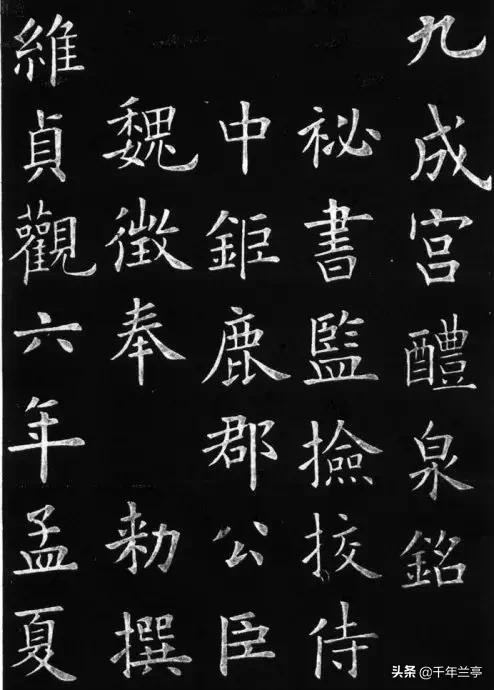 九成宫醴泉銘
祕書監撿挍侍
中鉅鹿郡公臣
魏徵奉 勑撰
維貞觀六年孟夏
头条 @千年兰亭